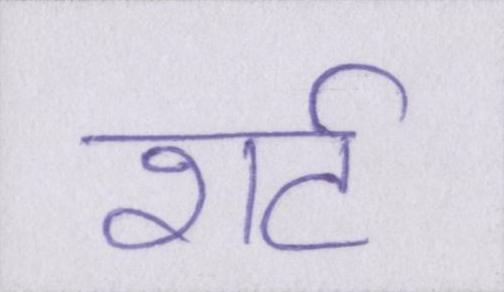 शर्ट